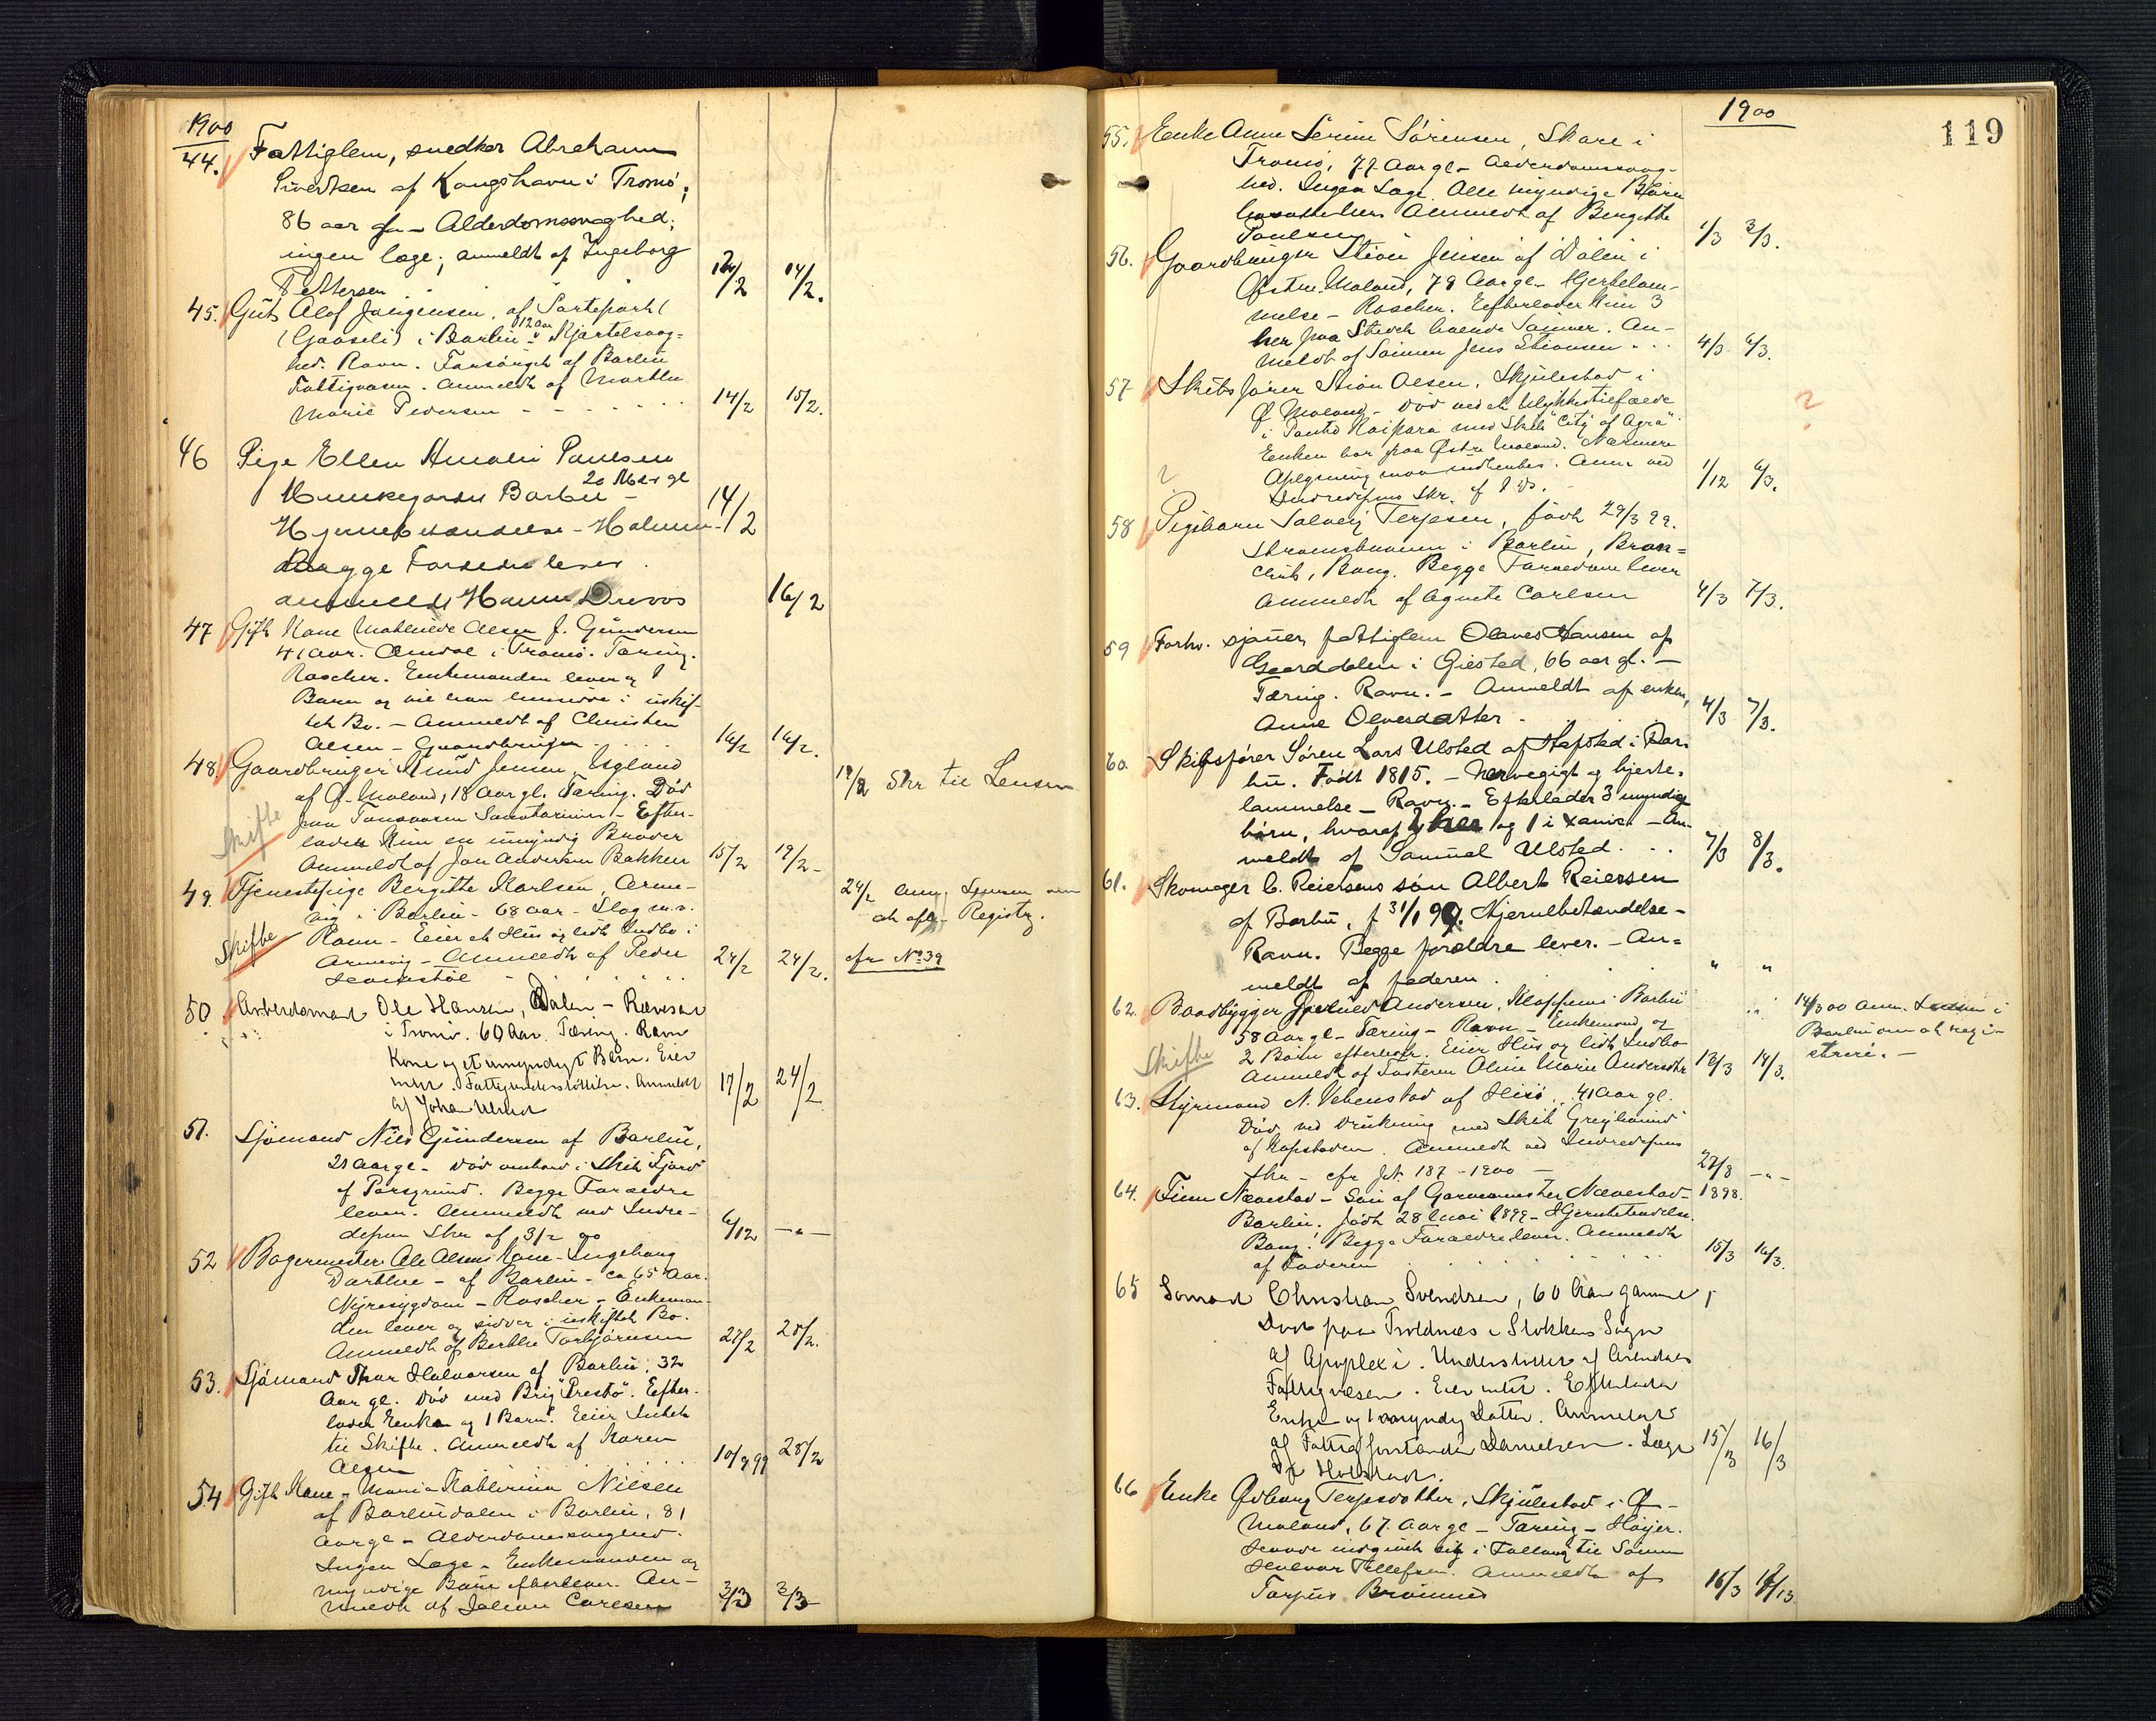 1900
44. Fattiglem, snedker Abraham
Sivertsen af Kongshavn i Tromö,
86 aar gl – Alderdomssvaghed;
ingen læge; anmeldt af Ingeborg
Pettersen 12/2 14/2.
45. Gut Olaf Jörgensen, af
(Gaaseli) i Barbu – 12 aar Kjertelsvag-
hed. Ravn. Forsörget af Barbu
Fattigvæsen. Anmeldt af Marthe
Marie Pedersen - - - 14/2 15/2.
46 Pige Ellen Amalie Paulsen
20 Mdr gl
Munkegordet Barbu –
Hjernebetændelse – Holmen 14/2
Begge Forældre lever.
anmeldt Hanna 16/2
47 Gift Kone Mathilde Olsen f. Gundersen
41 Aar. Omdal i Tromö. Tæring.
Roscher. Enkemanden lever og 1
Barn og vil han hensidde i uskif-
tet Bo. – Anmeldt af Christen
Olsen – Gaardbruger 16/2 16/2.
48 Gaardbruger Knud Jensen Esgland
af Ö. Moland, 18 Aar gl. Tæring. Död
paa Tonsaasen Sanatorium – Efter-
lader kun en umyndig Broder
Anmeldt af Jon Andersen Bakken 15/2 19/2 –
19/2 Skr til Lensm
Skifte
49. Tjenestepige Bergitte Karlsen, Arne-
vig i Barbu – 68 aar – Slag m.v.
Ravn – Eier et Hus og lidt Indbo i
Arnevig – Anmeldt af Peder
24/2 24/2.
24/2 anm. Lensm om
at afh. Registr.
cfr No 39
Skifte
50 Arbeidsmand Ole Hansen, Dalen – Rævesand
i Tromö. 60 Aar. Tæring. Ravn
Kone og et umyndigt Barn. Eier
intet. Fattigunderstöttelse. Anmeldt
af Johan Ulstad 17/2 24/2
51. Sjömand Nils Gundersen af Barbu,
21 Aar gl – död ombord i Skib "Fjord"
af Porsgrund. Begge Forældre
lever. Anmeldt ved Indre-
depns Skr af 3/2 00 6/12 –"–
52 Bagermester Ole Olsens Kone – Ingeborg
Dorthea – af Barbu – ca 65 Aar.
Nyresygdom – Roscher – Enkeman-
den lever og sidder i uskiftet Bo.
Anmeldt af Berthe Torbjörnsen 27/2 28/2.
53. Sjömand Thor Halvorsen af Barbu, 32
Aar gl. Död med Brig "Prestö". Efter-
lader Enke og 1 Barn. Eier Intet
til Skifte. Anmeldt af Karen
Olsen 10/9 99 28/2
54 Gift Kone – Maria Kathrine Nilsen
af Barbudalen i Barbu, 81
Aar gl – Alderdomssvaghed.
Ingen Læge – Enkemanden og
myndige Börn efterlever. An-
meldt af Johan Carlsen 3/3 3/3 –
1900
119
55. Enke Anne Serine Sörensen, Skare i
Tromö, 77 Aar gl – Alderdomssvag-
hed. Ingen Læge. Alle myndige Börn
Anmeldt af Bergitte
Paulsen 1/3 3/3.
56. Gaardbruger Stian Jensen af Dalen i
Östre Moland, 79 Aar gl – Hjertelam-
melse – Roscher. Efterlader kun 3
her paa Stedet boende Sönner. An-
meldt af Sönnen Jens Stiansen . . . 4/3 6/3.
57 Skibsförer Stian Olsen, Skjulestad i
Ö. Moland – död ved et Ulykkestilfælde
i Kaipara med Skib "City of Agra"
Enken bor paa Östre Moland. Nærmere
Oplysning maa indhentes. Anm. ved
Indredepns Skr. 1/12 6/3.
?
?
58 Pigebarn Solveig Terjesen, födt 29/3 99.
Strömsbuenen i Barbu, Bron-
chit, Bang. Begge Forældrene lever
Anmeldt af Agnete Carlsen 4/3 7/3.
59 Forhv. sjömen fattiglem Olaves Hansen af
Gaarddalen i Giested, 66 aar gl. –
Tæring. Ravn. – Anmeldt af enken,
Anne Olevsdatter – 4/3 7/3.
60. Skibsförer Sören Lars Ulsted af Hafsted i Bar-
bu. Född 1815. – Nervegigt og hjerte-
lammelse – Ravn. – Efterlader 3 myndige
börn, hvoraf 2 her og 1 i – An-
meldt af Samuel Ulsted . . 7/3 8/3.
61. Skomager C. Reiersens sön Albert Reiersen
af Barbu, f 31/1 99. Hjernebetændelse –
Ravn. Begge forældre lever. – An-
meldt af faderen. " "
62. Baadbygger Andersen, Kloppene i Barbu
58 Aar gl – Tæring – Ravn – Enkemand og
2 Börn efterlevr. Eier Hus og lidt Indbo
Anmeldt af Söstern Oline Marie Andersdtr 13/3 14/3.
14/3 00 anm. Lensm i
Barbu om at regi-
strere. –
Skifte
63. Styrmand N. Vebenstad af Hisö, 41 Aar gl.
Död ved Drukning med Skib "Greyhound"
af Kapstaden. Anmeldt ved Indredepns
Skr – cfr Jn. 187 – 1900 – 27/8 –"–
1898.
64. Finn Nævestad – Sön af Garvermester Nævestad –
Barbu. födt 28 Mai 1899 – Hjernebetændelse.
Bang. Begge Forældre lever. Anmeldt
af Faderen 15/3 16/3.
65 Sömand Christian Svendsen, 60 Aar gammel,
Död paa Troldnæs i Stokken Sogn
af Apoplexi. Understöttet af Arendals
Fattigvæsen. Eier intet. Efterlader
Enke og 1 umyndig Datter. Anmeldt
af Fattigforstander Danielsen. Læge
Holstad. 15/3 16/3
66 Enke Ödbeorg Terjesdatter, Skjulestad i Ö –
Moland, 67 Aar gl – Tæring – Höyer.
Havde indgivet sig i Follaug til Sönnen
Halvor Tellefsen. Anmeldt af
Torjus Brömnes 16/3 17/3.